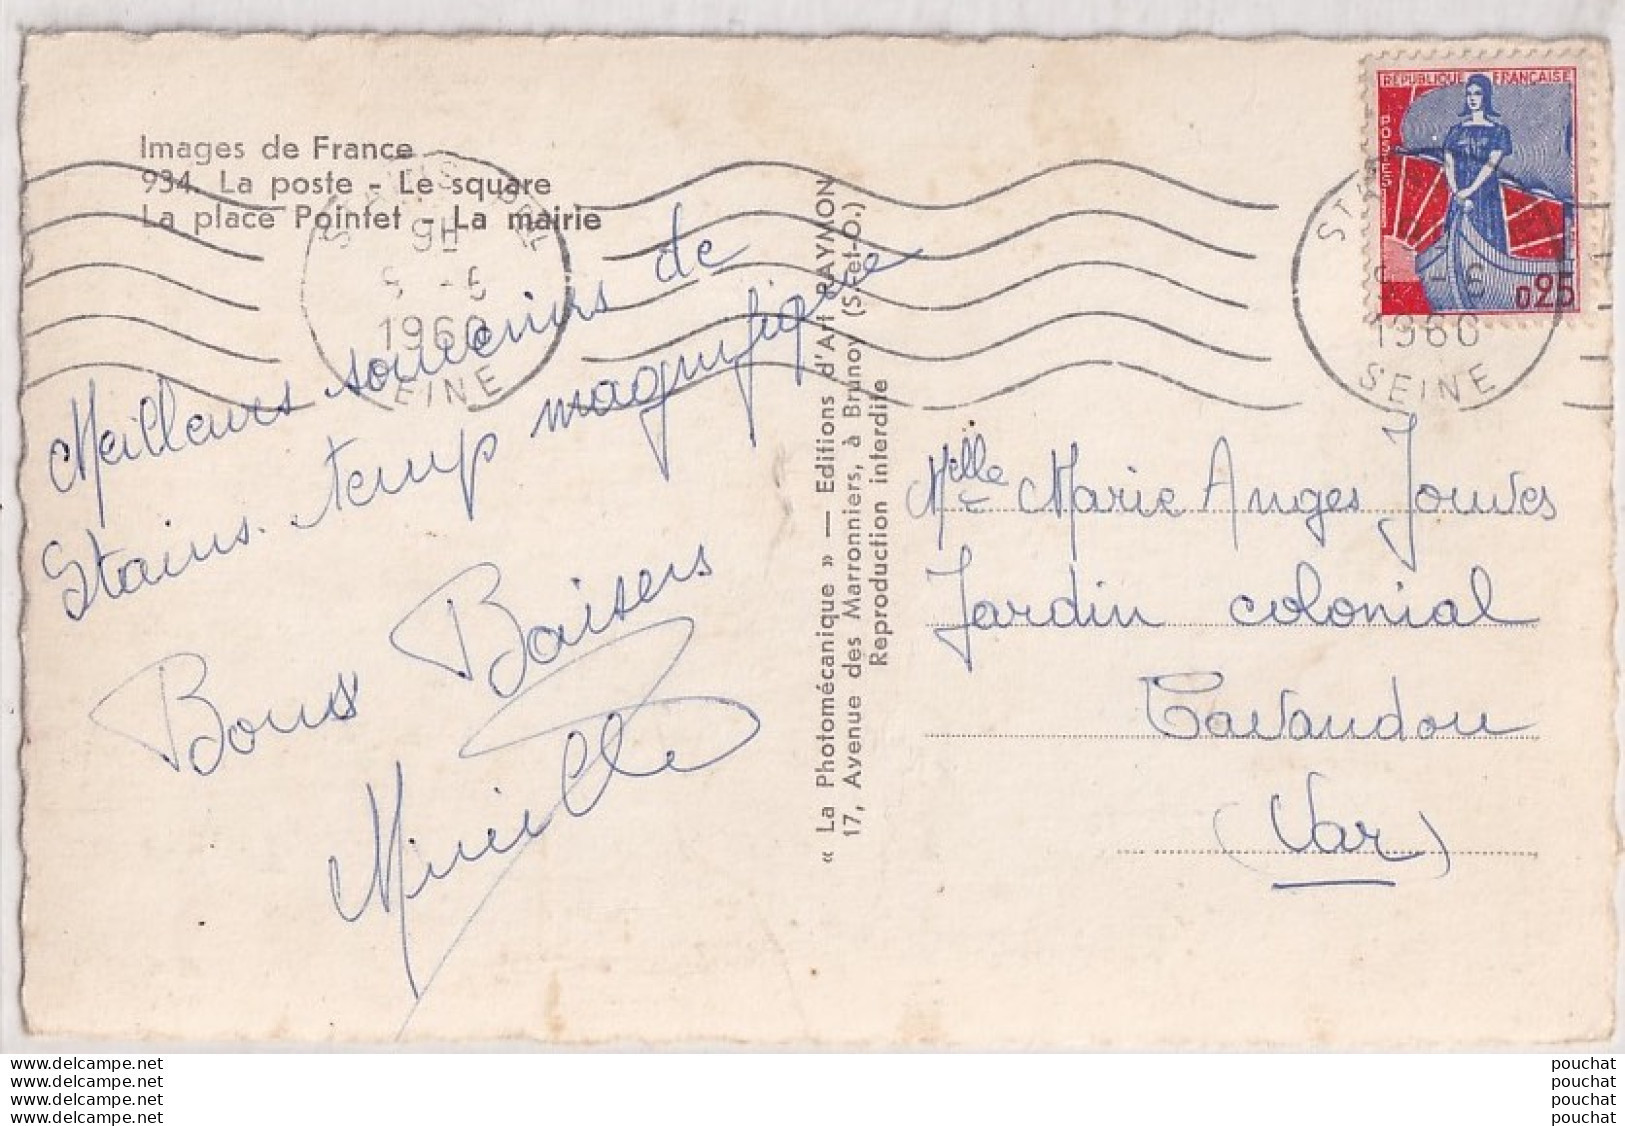 Images de France
934. La poste - Le square
La place Pointet - La mairie
9H
1960
SEINE
RÉPUBLIQUE FRANÇAISE
POSTES
0,25
1960
SEINE
Meilleurs souvenirs de
Stains. temp magnifique
Bons Baisers
Mireille
« La Photomécanique » — Editions d'Art RAYMON
17, Avenue des Marronniers, à Brunoy (S.-et-O.)
Reproduction interdite
Melle Marie Anges Jouves
Jardin colonial
Cavandou
(Var)
www.delcampe.net
www.delcampe.net
www.delcampe.net
www.delcampe.net
pouchat
pouchat
pouchat
pouchat